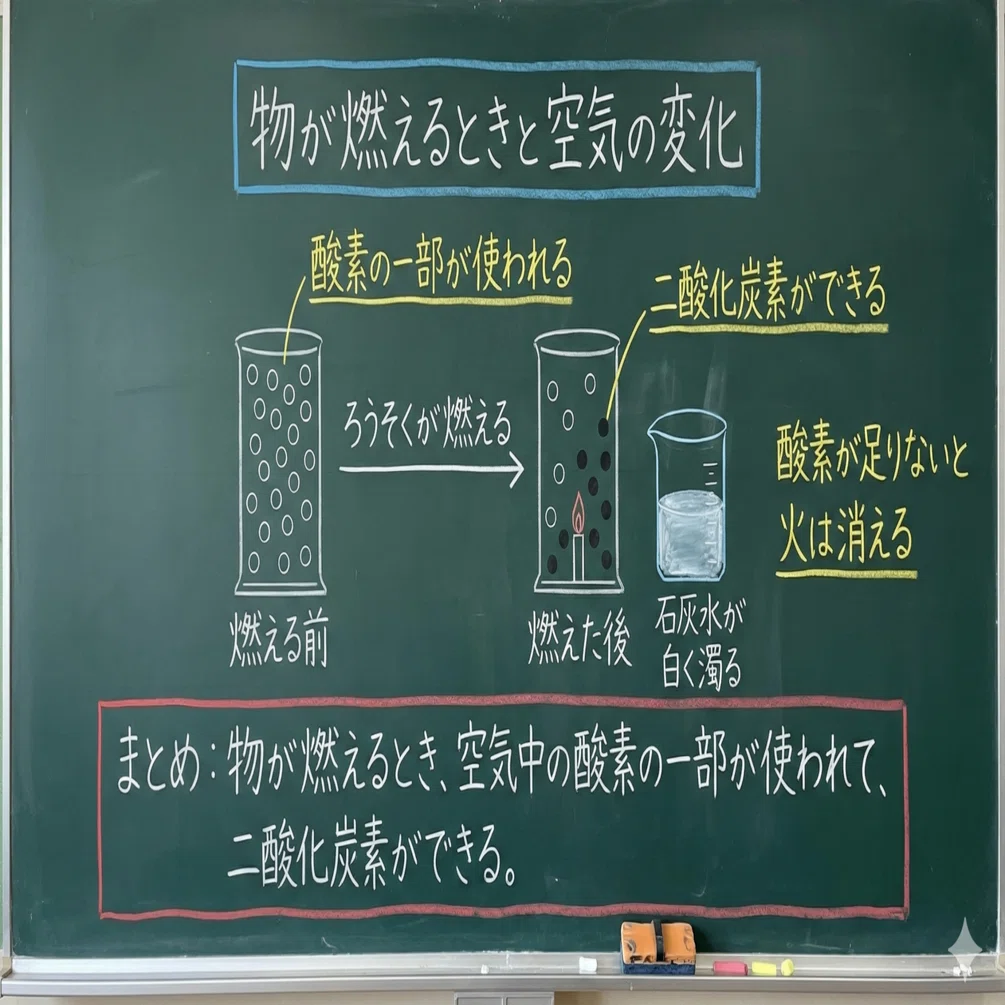 物が燃えるときと空気の変化
酸素の一部が使われる
二酸化炭素ができる
ろうそくが燃える
酸素が足りないと
火は消える
燃える前
燃えた後
石灰水が
白く濁る
まとめ：物が燃えるとき、空気中の酸素の一部が使われて、
二酸化炭素ができる。